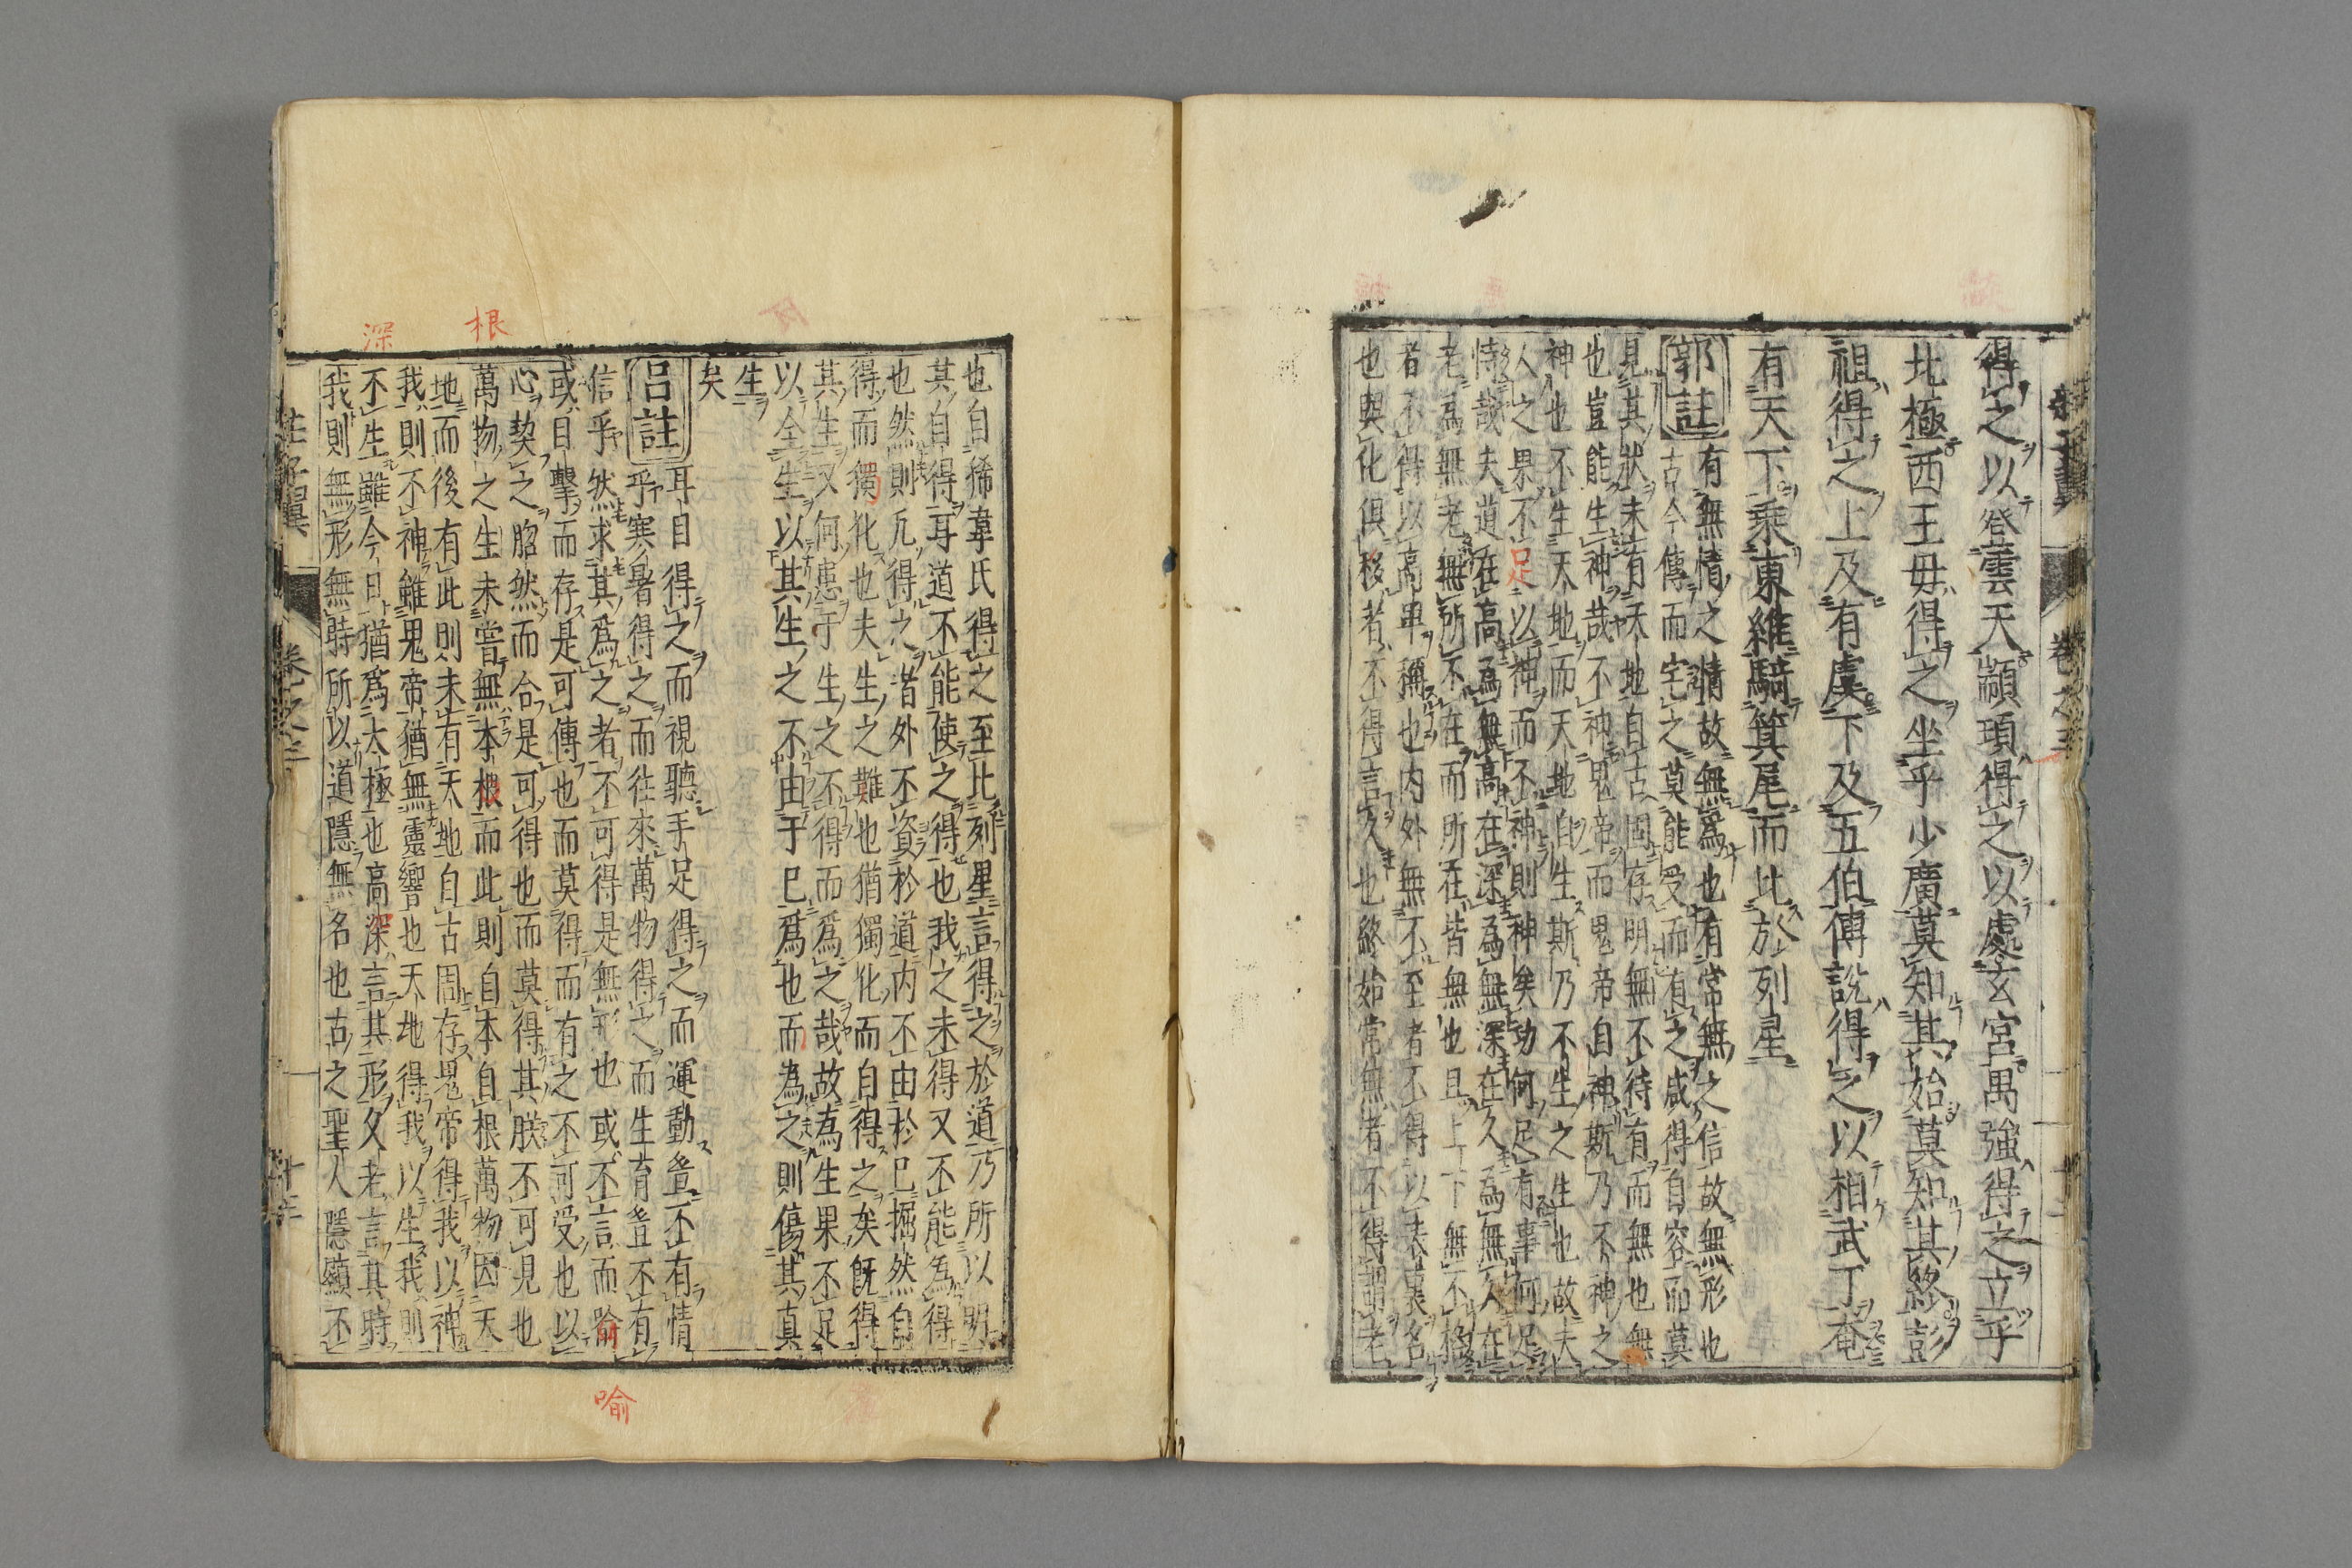 得之以登雲天顓頊得之以處玄宮禺強得之立乎
北極西王母得之坐乎少廣莫知其始莫知其終彭
祖得之上及有虞下及五伯傅說得之以相武丁奄
有天下乘東維騎箕尾而比於列星
郭註
有無情之情故無爲也有常無之信故無形也
古今傳而宅之莫能受而有之咸得自容而莫
見其狀未有天地自古固存明無不待有而無也無
也豈能生神哉不神鬼帝而鬼帝自神斯乃不神之
神也不生天地而天地自生斯乃不生之生也故夫
人之果不足以神而不神則神矣功何足有事何足
恃哉夫道在高爲無高在深爲無深在久爲無久在
老爲無老無所不在而所在皆無也且上下無不格
者不得以高卑稱也内外無不至者不得以表裏名
也與化俱移者不得言久也終始常無者不得謂老
也自狶韋氏得之至比列星言得之於道乃所以明
其自得耳道不能使之得也我之未得又不能為得
也然則凡得之者外不資於道内不由於已掘然自
得而獨化也夫生之難也猶獨化而自得之矣既得
其生又何患于生之不得而爲之哉故為生果不足
以全生以其生之不由于已爲也而為之則傷其真
生
矣
呂註
耳目得之而視聽手足得之而運動豈不有情
乎寒暑得之而往來萬物得之而生育豈不有
信乎然求其爲之者不可得是無形也或不言而喻
或目擊而存是可傳也而莫得而有之不可受也以
心契之脗然而合是可得也而莫得其朕不可見也
萬物之生未嘗無本根而此則自本自根萬物因天
地而後有此則未有天地自古固存鬼帝得我以神
我則不神雖鬼帝猶無靈響也天地得我以生我則
不生雖今日猶爲太極也高深言其形久老言其時
我則無形無時所以道隱無名也古之聖人隱顯不
根
深
喻
莊子翼
卷之三